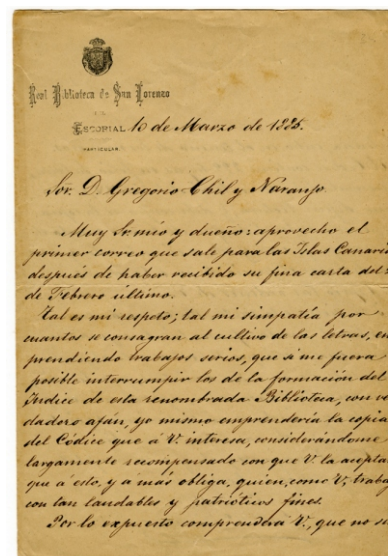 Real Biblioteca de San Lorenzo
DEL
ESCORIAL 10 de Marzo de 1885.
PARTICULAR
Sor. D. Gregorio Chil y Naranjo
Muy Sr. mio y dueño: aprovecho el
primer correo que sale para las Islas Canarias
despues de haber recibido su fina carta del
de Febrero ultimo.
Tal es mi respeto; tal mi simpatía por
cuantos se consagran al cultivo de las letras, em
prendiendo trabajos serios, que si me fuera
posible interrumpir los de la formación del
Indice de esta renombrada Biblioteca, con ver
dadero afán, yo mismo emprendería la copia
del Códice que á V. interesa, considerándome
largamente recompensado con que V. la acepta
que á esto, y a mas obliga, quien, como V, trabaj
con tan laudables y patrióticos fines.
Por lo expuesto comprenderá V., que no se